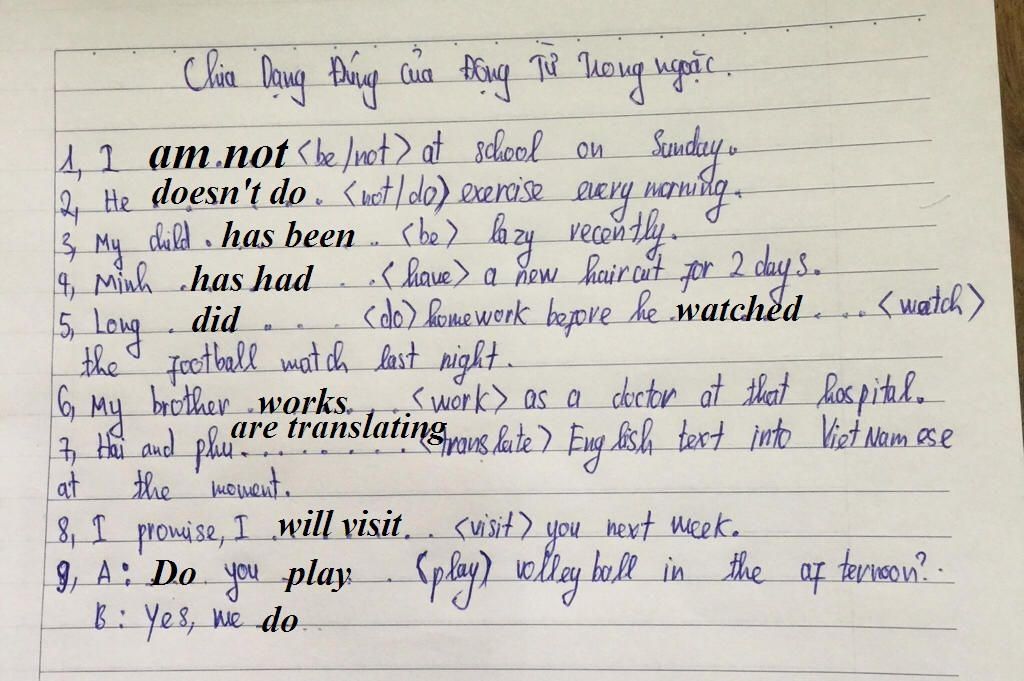 Chia Dạng Đúng Của Động Từ Trong ngoặc.
1, I am not <be/not> at school on Sunday.
2, He doesn't do . <not/do) exercise every morning.
3, My child . has been .. <be> lazy recently.
4, Minh . has had . .. <have> a new haircut for 2 days.
5, Long . did . . . . <do) homework before he . watched . ... <watch>
the football match last night.
6, My brother . works. ... <work> as a doctor at that hospital.
7, Hai and phu are translating ........ <translate> English text into VietNamese
at the moment.
8, I promise, I . will visit .. <visit> you next week.
9, A: Do you play . (play) volleyball in the afternoon?
B: Yes, we do